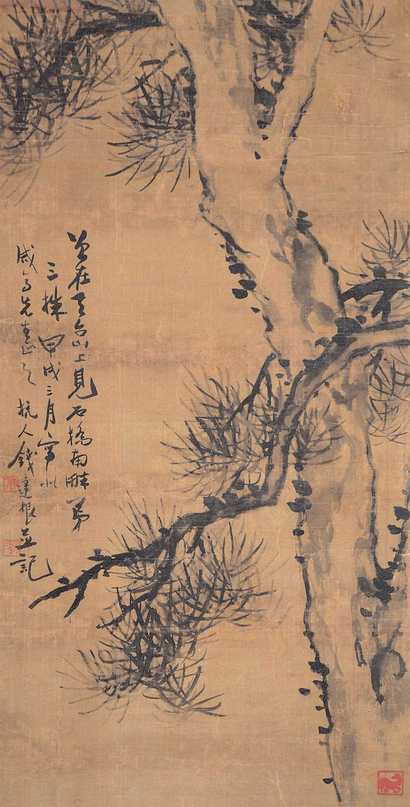 曾在天台山上見石橋南畔第
三株甲戌三月寫似
先生正之杭人錢根並記